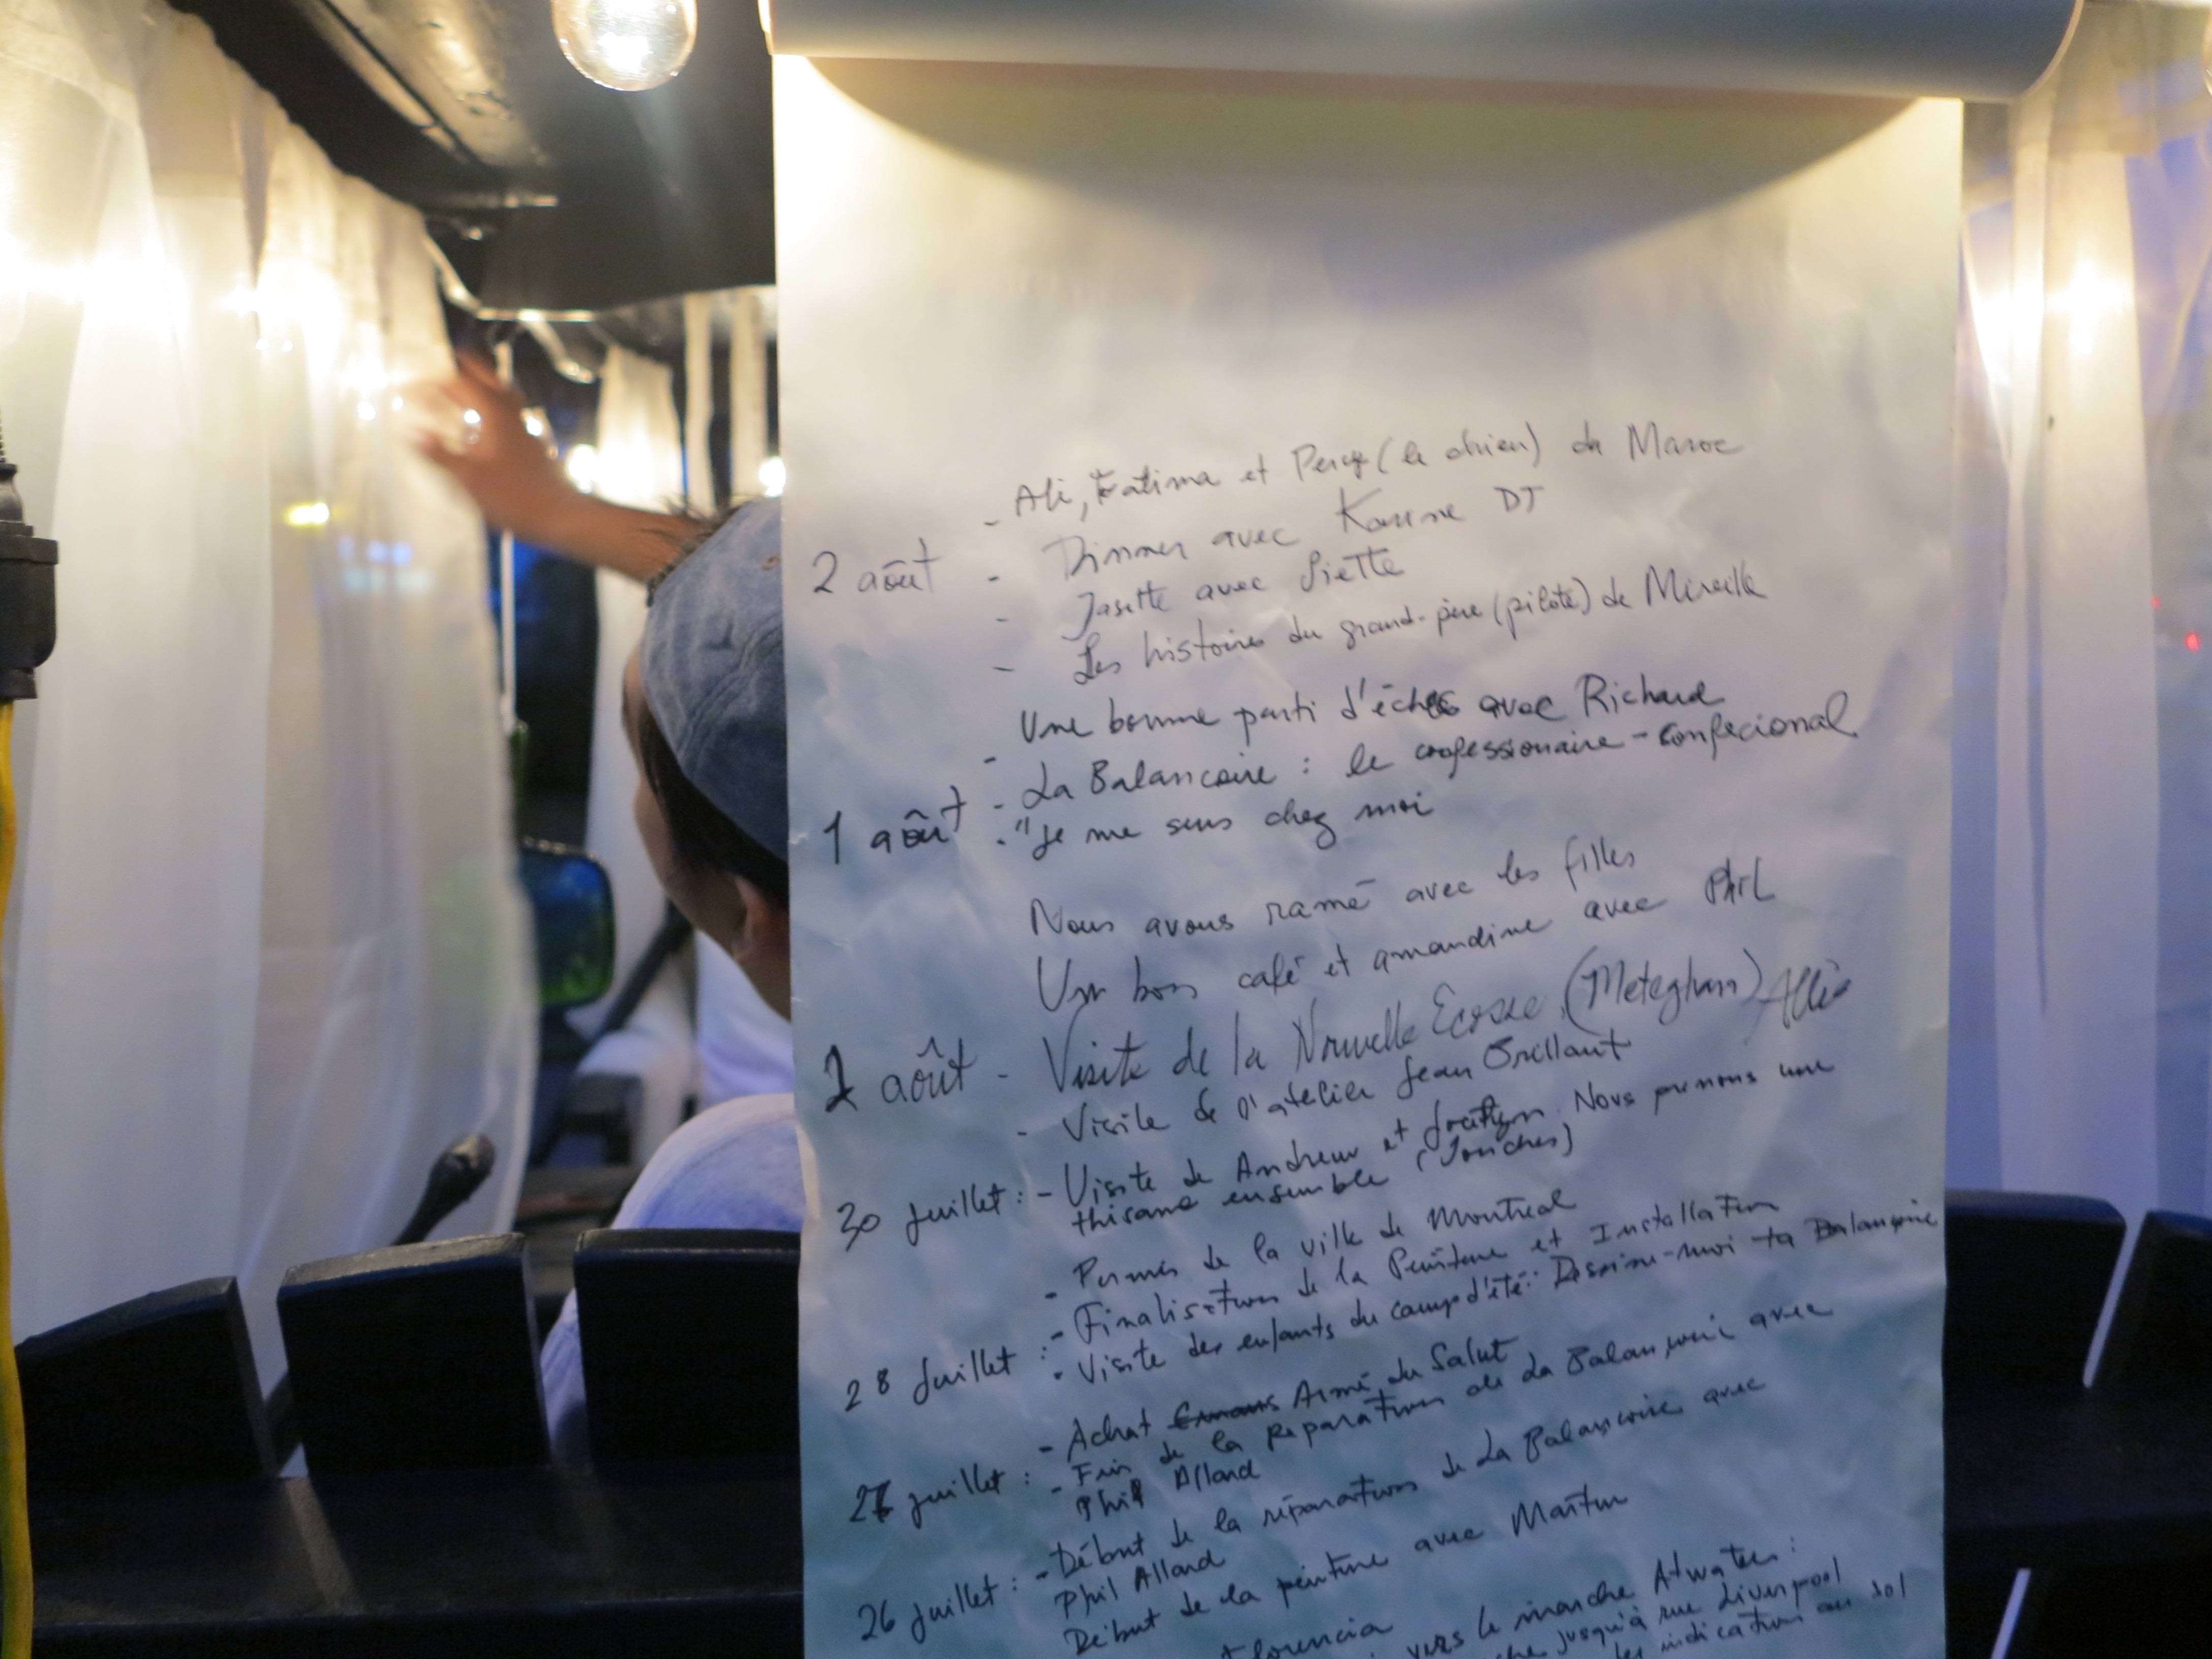 - Ali, Fatima et Percy (le chien) du Maroc
2 août - Dinner avec Karine DJ
- Jasette avec Liette
- Les histoires du grand-père (pilote) de Mireille
- Une bonne parti d'échecs avec Richard
1 août - La Balançoire : le confessionaire - confecional
- "Je me sens chez moi
Nous avons ramé avec les filles
Un bon café et amandine avec Phil
1 août - Visite de la Nouvelle Ecosse (Meteghan)
- Visite de l'atelier Jean Brillant
30 juillet : - Visite de Andrew et Nous prenons une
thisane ensemble
- Permis de la ville de Montreal
- Finalisation de la Peinture et Installation
28 Juillet : - Visite des enfants du camp d'été : Dessine-moi ta Balançoire
- Achat Armé du Salut
27 juillet : - Fin de la Réparation de La Balançoire avec
Phil Allard
26 juillet : - Début de la réparation de La Balançoire avec
Phil Allard
Début de la peinture avec Martin
Florencia
vers le marche Atwater :
jusqu'à rue Liverpool
les indication au sol